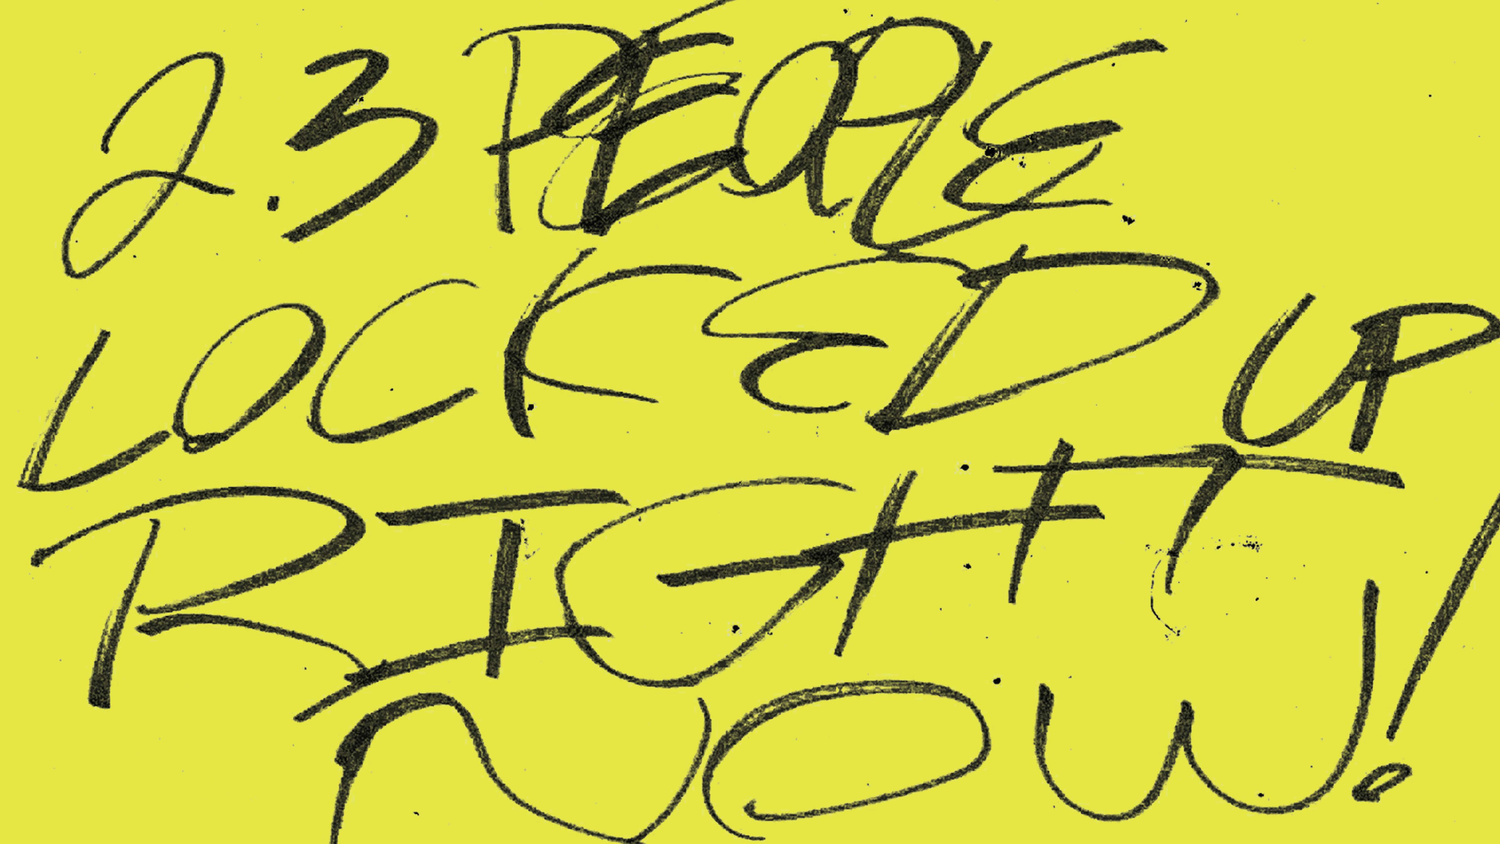 2.3 PEOPLE
LOCKED UP
RIGHT
NOW!